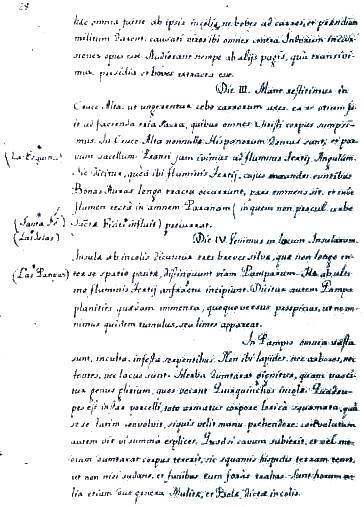 28
haec omnia fuere ab ipsis incolis, ne boves ad carros, et praesidium
militum darent, caussati vires ibi omnes contra Indorum incursi-
siones opus esse. Audierant nempe ab alijs pagis, qua transivi-
mus praesidia et boves extracta esse.
Die III. Mane restitimus in
Cruce Alta, ut ungerentur sebo carrorum axes. ea re otium fu-
it ad facienda pia sacra, quibus omnes Christi corpus sumpsi-
mus. In Cruce Alta nonnullae Hispanorum domus sunt, et par-
vum sacellum. Pransi jam ivimus ad fluminis Tertij Angulum.
(La Esquina)
Sic dicitur, quia ibi fluminis Tertij, cujus euntibus
Bonas Auras longo tractu occurrunt, pars eminens sit. et inde
flumen recta in amnem Paranam (in quem non procul urbe
(Santa Fé)
Sacra Fide influit) 
(Las Islas)
Die IV. Venimus in locum Insularum.
Insula ab incolis dicuntur tres breves silvae, quae non longo in-
(Las Pampas)
ter se spatio positae, distinguunt viam Pamparum. ab ulti-
mo fluminis Tertij anfractu incipiunt. Dicitur autem Pampa
planities quaedam immensa, quoquo versus prospicias, ut ne mi-
nimus quidem tumulus, seu limes appareat.
In Pampis omnia vasta
sunt, inculta, infesta serpentibus. Non ibi lapides, nec arbores, nec
fontes, nec lacus sunt. Herba duntaxat gignitur, quam pasci-
tur genus glirium, quos vocant Quirquinchos incolae. Quadru-
pes est instar porcelli, toto armatur corpore lorica squamata, qua
se se totum convolvit, siquis velit manu prehendere. convolutum
autem vix vi summa explices. Quod si cavum subierit, et vel me-
diam duntaxat corpus texerit, sic squamis hispidis terram tenet,
ut non nisi sudans, et funibus eum foras trahas. Sunt horum a-
lia etiam duo genera Mulita, et Bola dictae incolis.